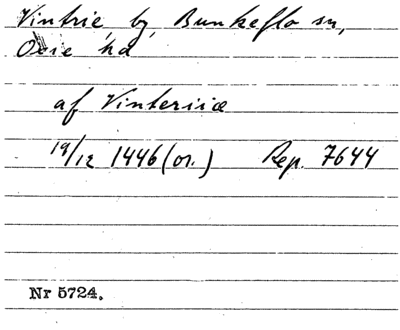 Vintrie, by, Bunkeflo sn,
Oxie hd
af Vinteriiæ
19/12 1446 (or.) Rep. 7644
Nr 5724.